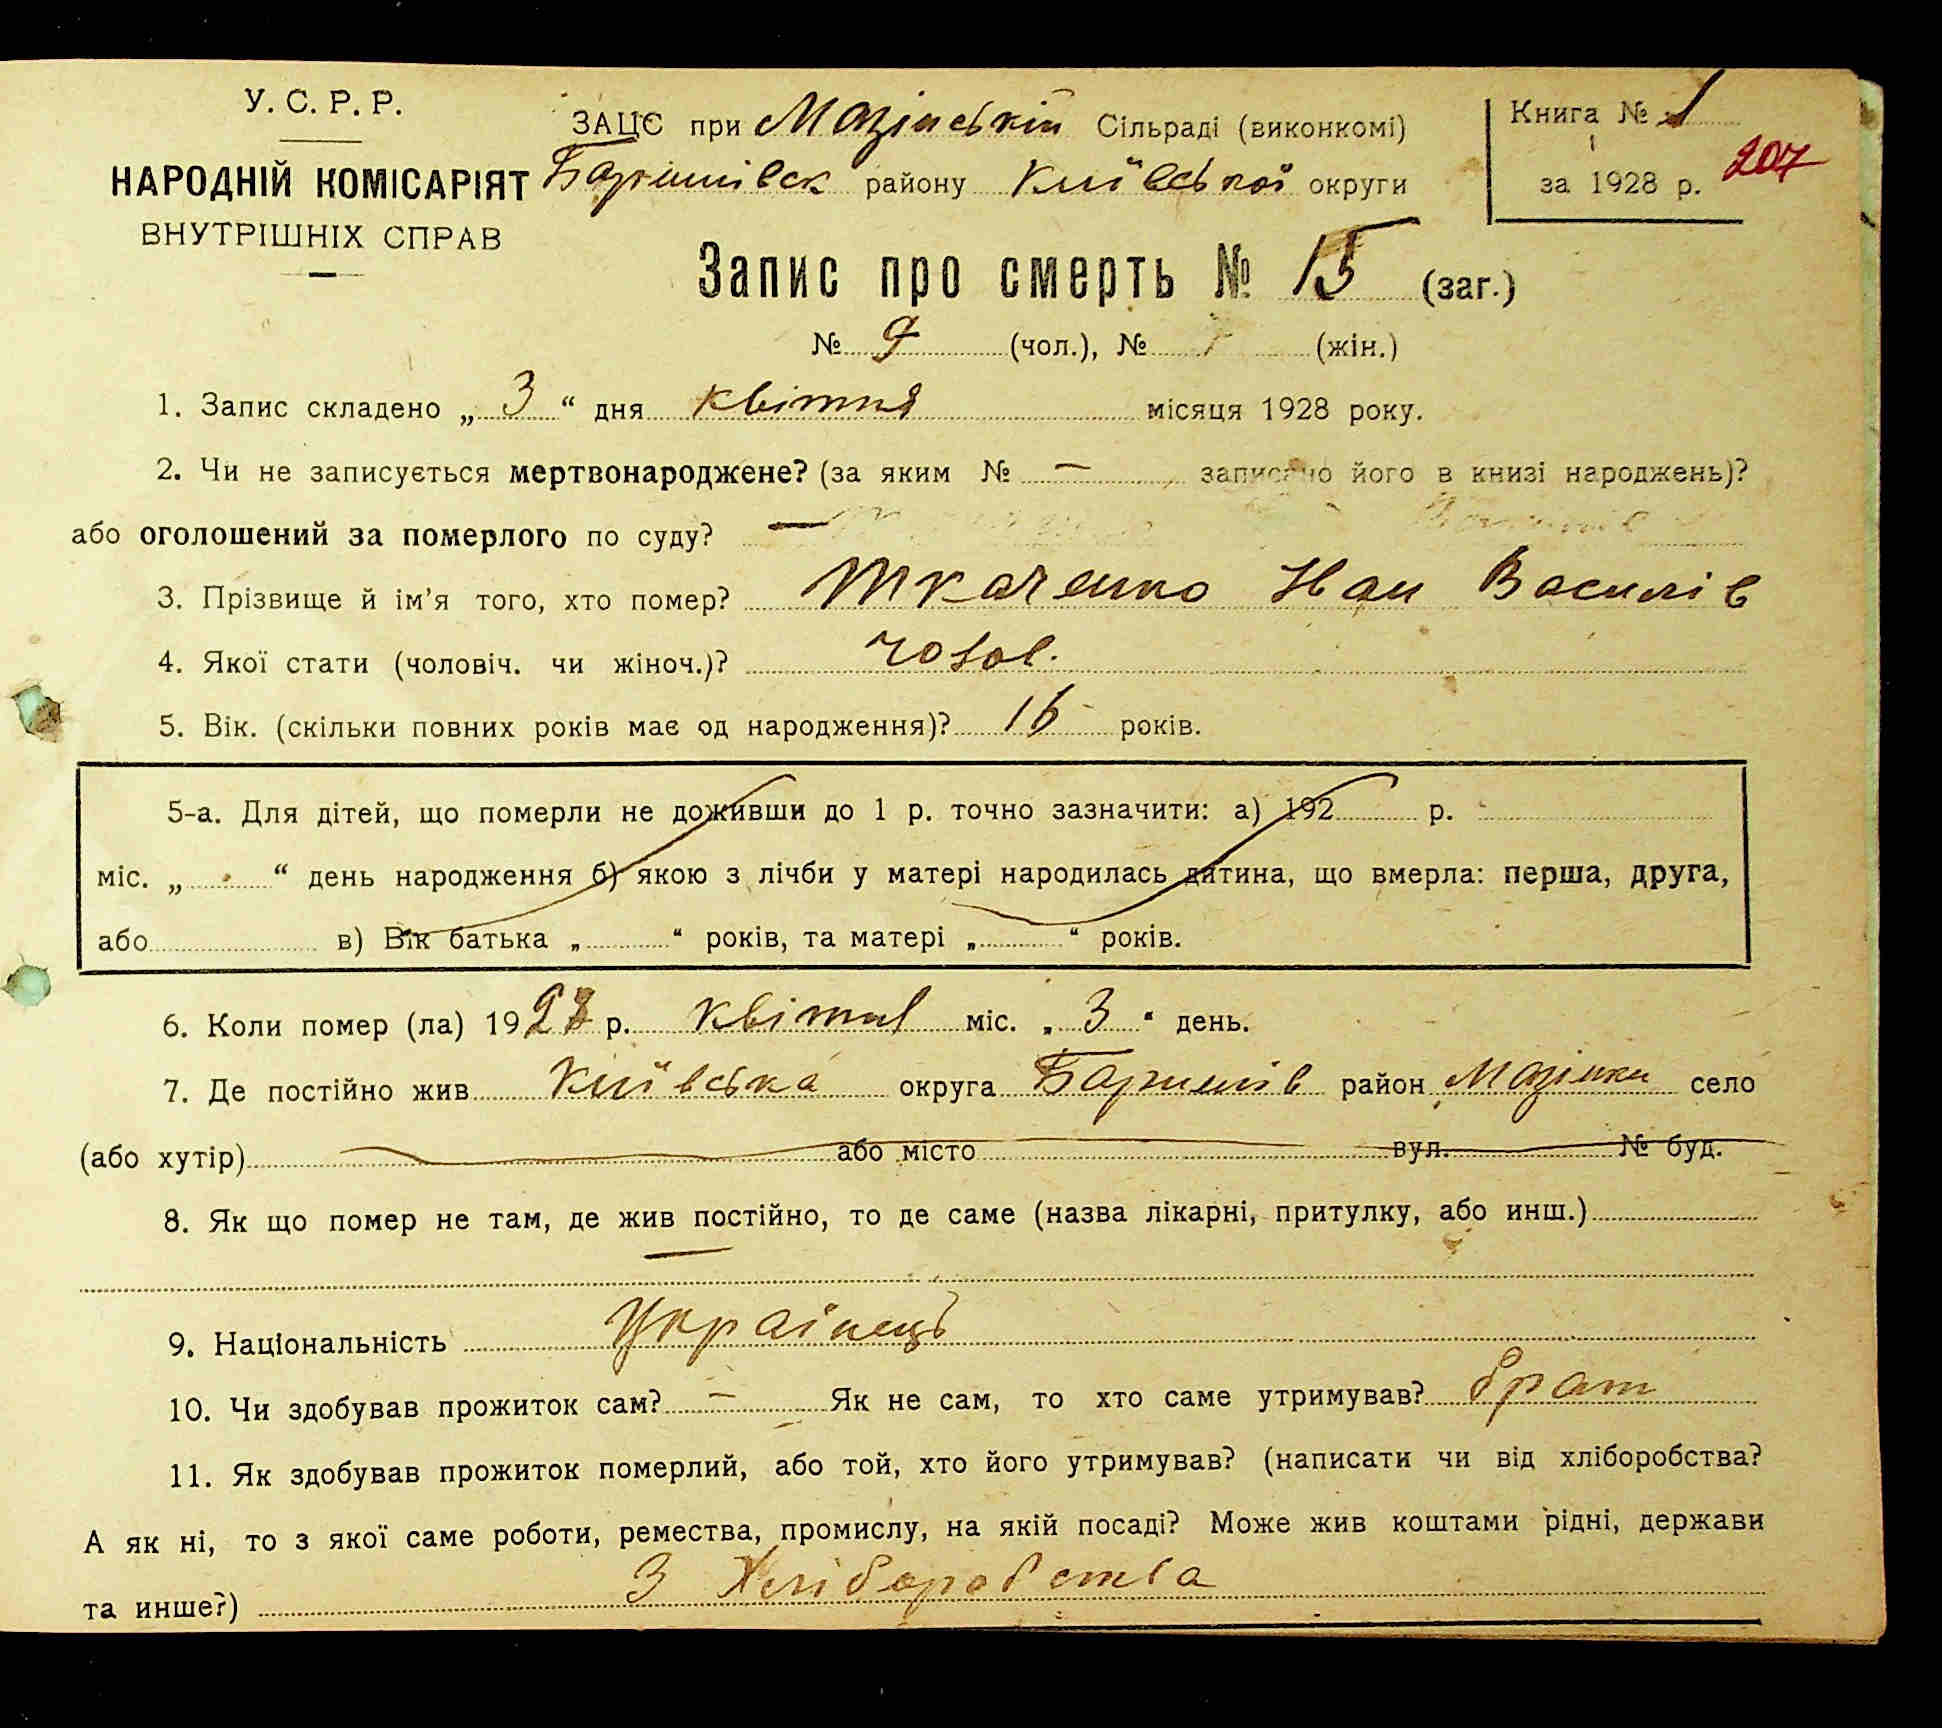 У. С. Р. Р.
НАРОДНІЙ КОМІСАРІЯТ
ВНУТРІШНІХ СПРАВ
ЗАЦС при Мазінській Сільраді (виконкомі)
Баришівск району Київської округи
Книга № 1
за 1928 р.
207
Запис про смерть № 15 (заг.)
№ 9 (чол.), № (жін.)
1. Запис складено „ 3 “ дня квітня місяця 1928 року.
2. Чи не записується мертвонароджене? (за яким № — записано його в книзі народжень)?
або оголошений за померлого по суду? —
3. Прізвище й ім’я того, хто помер? Ткаченко Иван Василів
4. Якої стати (чоловіч. чи жіноч.)? чолов.
5. Вік. (скільки повних років має од народження)? 16 років.
5-а. Для дітей, що померли не доживши до 1 р. точно зазначити: а) 192 р.
міс. „ “ день народження б) якою з лічби у матері народилась дитина, що вмерла: перша, друга,
або в) Вік батька „ “ років, та матері „ “ років.
6. Коли помер (ла) 1928 р. квітня міс. „ 3 “ день.
7. Де постійно жив Київська округа Баришів район Мазінки село
(або хутір) або місто вул. № буд.
8. Як що помер не там, де жив постійно, то де саме (назва лікарні, притулку, або инш.)
—
9. Національність Українець
10. Чи здобував прожиток сам? — Як не сам, то хто саме утримував? брат
11. Як здобував прожиток померлий, або той, хто його утримував? (написати чи від хліборобства?
А як ні, то з якої саме роботи, ремества, промислу, на якій посаді? Може жив коштами рідні, держави
та инше?) З Хліборобства